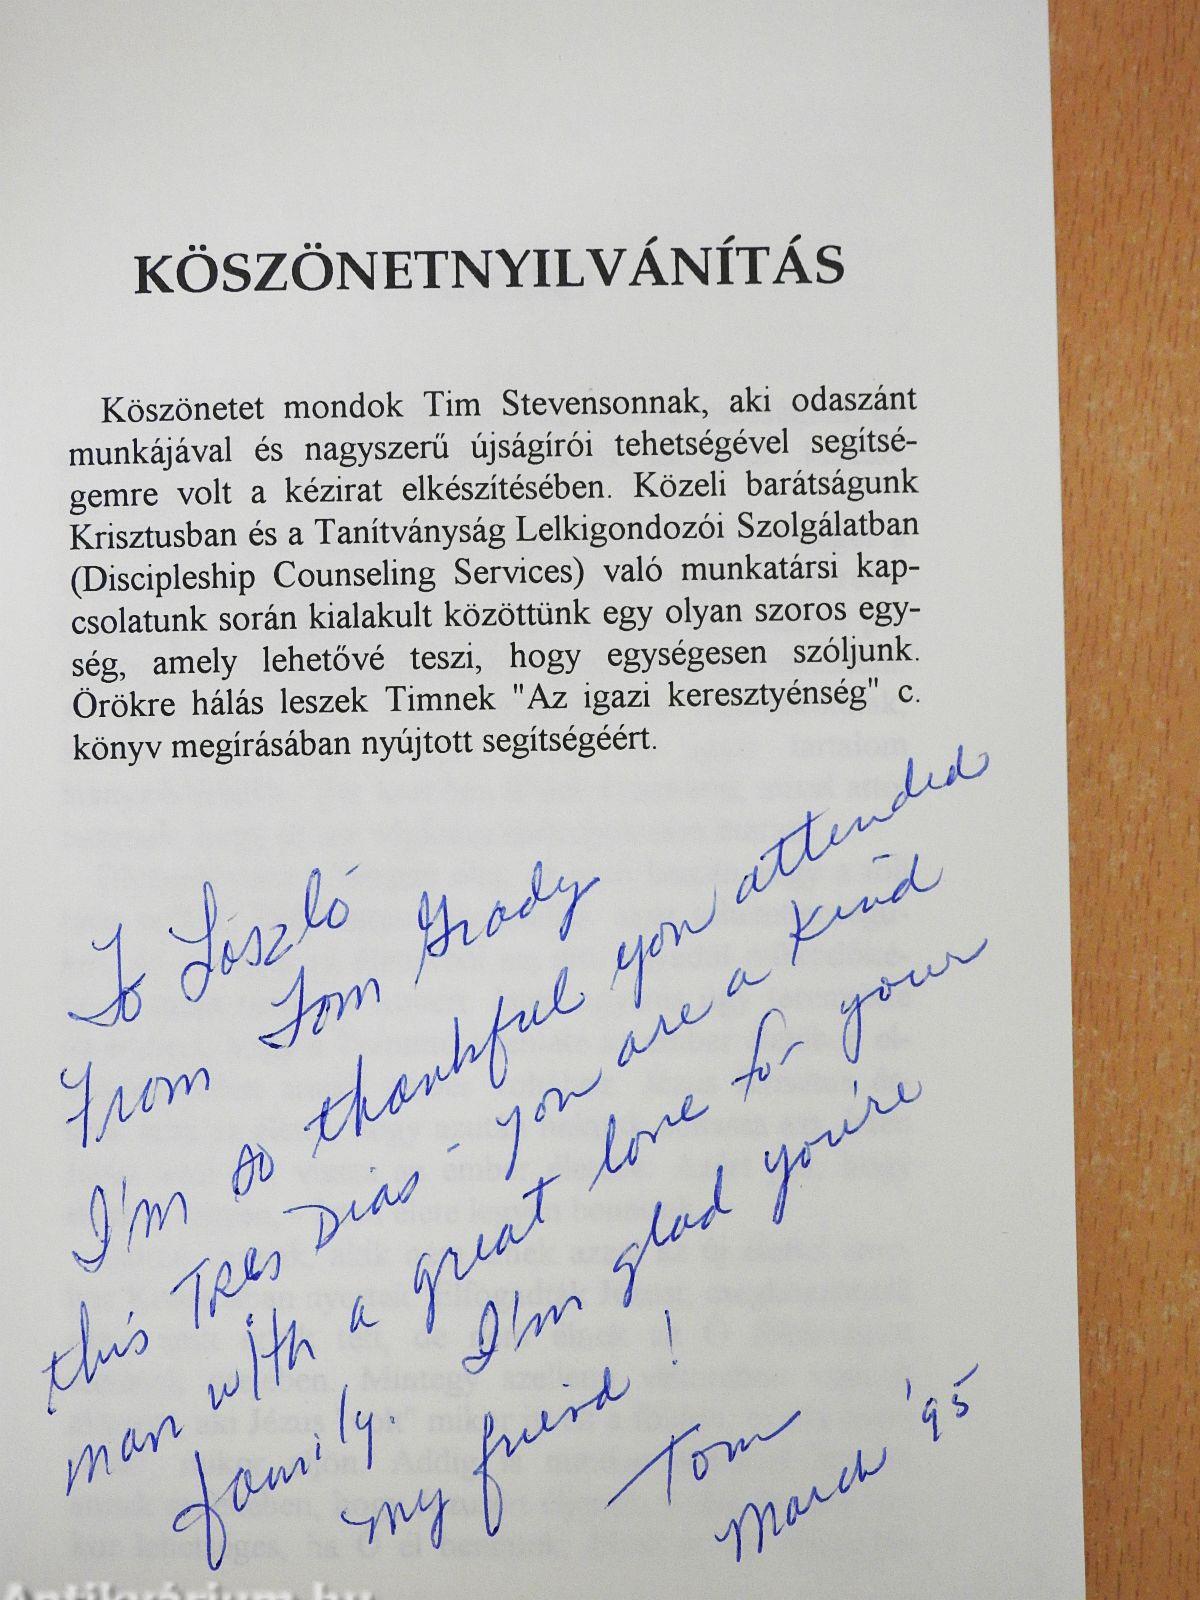 KÖSZÖNETNYILVÁNÍTÁS
Köszönetet mondok Tim Stevensonnak, aki odaszánt
munkájával és nagyszerű újságírói tehetségével segítsé-
gemre volt a kézirat elkészítésében. Közeli barátságunk
Krisztusban és a Tanítványság Lelkigondozói Szolgálatban
(Discipleship Counseling Services) való munkatársi kap-
csolatunk során kialakult közöttünk egy olyan szoros egy-
ség, amely lehetővé teszi, hogy egységesen szóljunk.
Örökre hálás leszek Timnek "Az igazi keresztyénség" c.
könyv megírásában nyújtott segítségéért.
To László
From Tom Grady
I'm so thankful you attended
this Tres Dias - you are a kind
man with a great love for your
family. I'm glad you're
my friend!
Tom
March '95
Antikvárium.hu